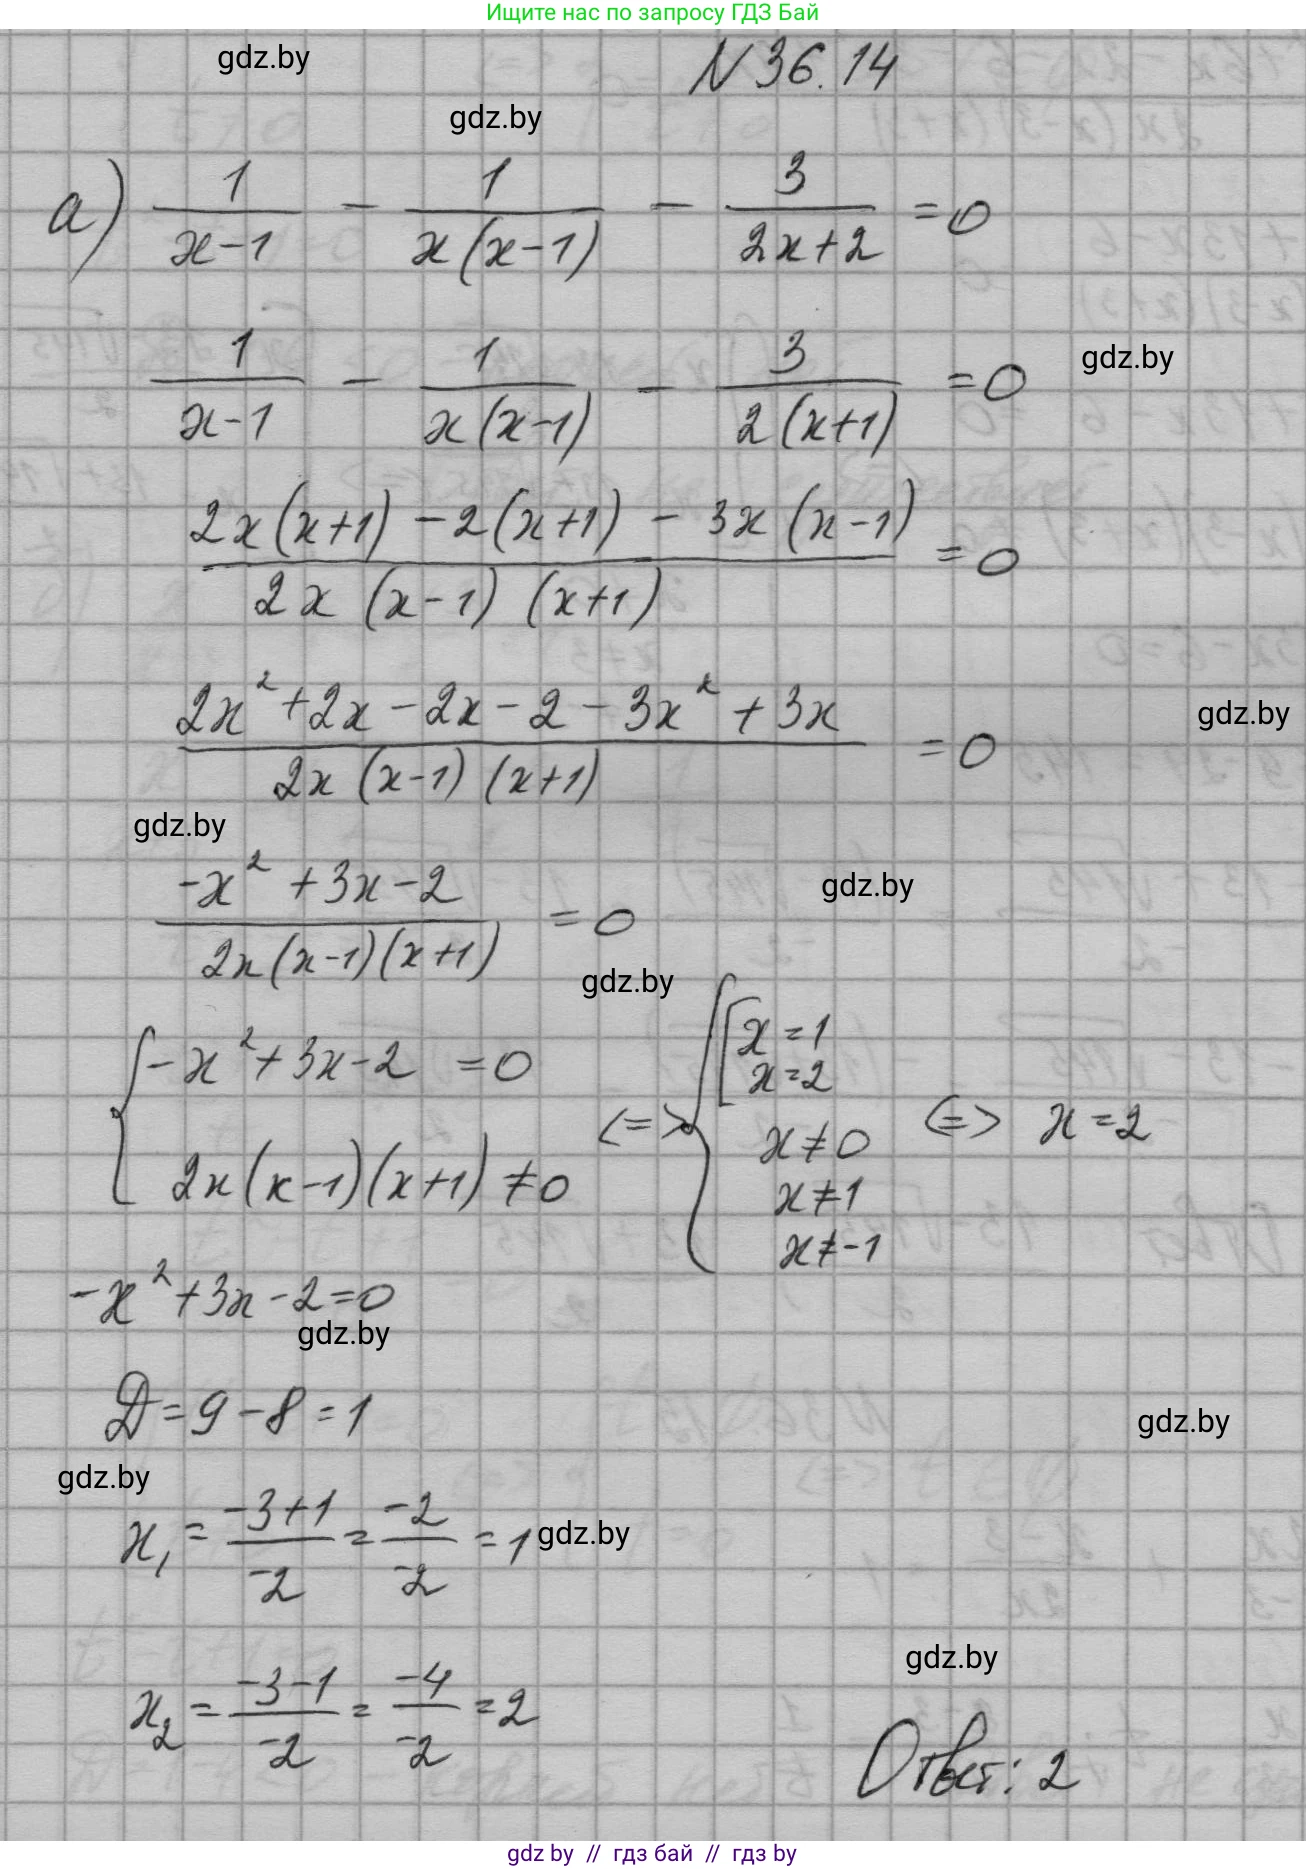 Ищите нас по запросу ГДЗ Бай
gdz.by
N 36.14
gdz.by
а) 1/(x-1) - 1/(x(x-1)) - 3/(2x+2) = 0
1/(x-1) - 1/(x(x-1)) - 3/(2(x+1)) = 0
gdz.by
(2x(x+1) - 2(x+1) - 3x(x-1))/(2x(x-1)(x+1)) = 0
(2x² + 2x - 2x - 2 - 3x² + 3x)/(2x(x-1)(x+1)) = 0
gdz.by
gdz.by
(-x² + 3x - 2)/(2x(x-1)(x+1)) = 0
gdz.by
gdz.by
{ -x² + 3x - 2 = 0
2x(x-1)(x+1) ≠ 0
<=> { [ x = 1
x = 2
x ≠ 0
x ≠ 1
x ≠ -1
<=> x = 2
-x² + 3x - 2 = 0
gdz.by
D = 9 - 8 = 1
gdz.by
gdz.by
x₁ = (-3+1)/(-2) = (-2)/(-2) = 1
gdz.by
gdz.by
x₂ = (-3-1)/(-2) = (-4)/(-2) = 2
Ответ: 2
gdz by // гдз бай // гдз by